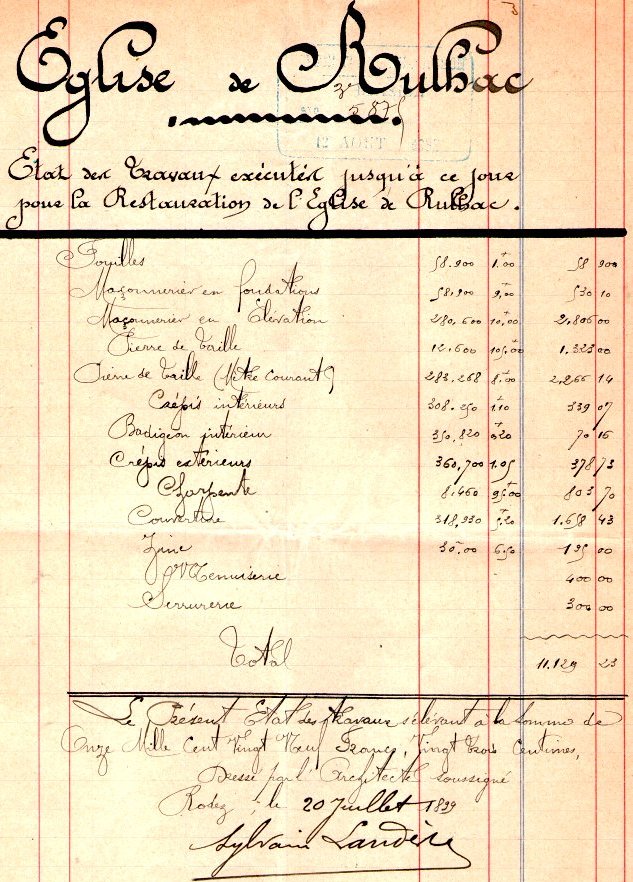 Eglise de Rulhac
12 AOUT
Etat des Travaux exécutés jusqu'à ce jour
pour la Restauration de l'Eglise de Rulhac.
Fouilles 58.900 1.00 58 900
Maçonneries en fondations 58,900 9,00 530 10
Maçonneries en Elévation 280,600 10,00 2,806 00
Pierre de Taille 12.600 105,00 1.323 00
Pierre de Taille (Mètre courant) 283,268 8.00 2,266 14
Crépis intérieurs 308.250 1.10 339 07
Badigeon intérieur 350,820 0.20 70 16
Crépis extérieurs 360,700 1.05 378 73
Charpente 8.460 95,00 803 70
Couverture 318,930 5.20 1.658 43
Zinc 30.00 6.50 195 00
Menuiserie 400 00
Serrurerie 300 00
Total 11.129 23
Le Présent Etat des travaux s'élevant à la Somme de
Onze Mille Cent Vingt Neuf Francs, Vingt Trois Centimes,
Dressé par l'Architecte soussigné
Rodez, le 20 Juillet 1899
Sylvain